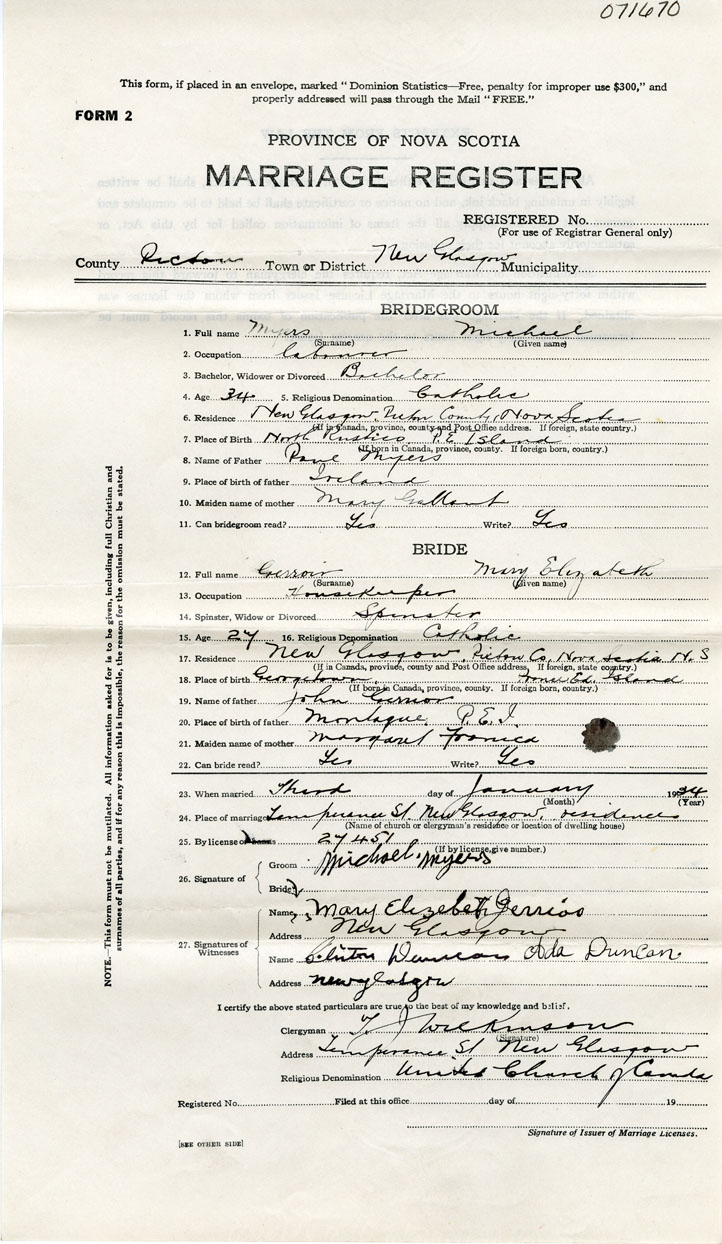 071670
This form, if placed in an envelope, marked "Dominion Statistics—Free, penalty for improper use $300," and
properly addressed will pass through the Mail "FREE."
FORM 2
PROVINCE OF NOVA SCOTIA
MARRIAGE REGISTER
REGISTERED No.
(For use of Registrar General only)
County Pictou Town or District New Glasgow Municipality
BRIDEGROOM
1. Full name Myers Michael
(Surname) (Given name)
2. Occupation labourer
3. Bachelor, Widower or Divorced Bachelor
4. Age 34 5. Religious Denomination Catholic
6. Residence New Glasgow, Pictou County, Nova Scotia
(If in Canada, province, county and Post Office address. If foreign, state country.)
7. Place of Birth North Rustico P.E. Island
(If born in Canada, province, county. If foreign born, country.)
8. Name of Father Paul Myers
9. Place of birth of father Ireland
10. Maiden name of mother Mary Gallant
11. Can bridegroom read? Yes Write? Yes
BRIDE
12. Full name Gerroir Mary Elizabeth
(Surname) (Given name)
13. Occupation Housekeeper
14. Spinster, Widow or Divorced Spinster
15. Age 27 16. Religious Denomination Catholic
17. Residence New Glasgow, Pictou Co, Nova Scotia N.S
(If in Canada, province, county and Post Office address. If foreign, state country.)
18. Place of birth Georgetown, Prince Ed. Island
(If born in Canada, province, county. If foreign born, country.)
19. Name of father John Gerroir
20. Place of birth of father Montague, P.E.I.
21. Maiden name of mother Margaret
22. Can bride read? Yes Write? Yes
23. When married Third day of January 1934
(Month) (Year)
24. Place of marriage Temperance St. New Glasgow, residence
(Name of church or clergyman's residence or location of dwelling house)
25. By license or banns 27451
(If by license, give number.)
26. Signature of
Groom Michael Myers
Bride
27. Signatures of Witnesses
Name Mary Elizebeth Gerrios
Address New Glasgow
Name Clinton Duncan Ada Duncan
Address new glasgow
I certify the above stated particulars are true to the best of my knowledge and belief.
Clergyman T. J Wilkinson
(Signature)
Address Temperance St New Glasgow
Religious Denomination United Church of Canada
Registered No. Filed at this office day of 19
Signature of Issuer of Marriage Licenses.
[SEE OTHER SIDE]
NOTE.—This form must not be mutilated. All information asked for is to be given, including full Christian and
surnames of all parties, and if for any reason this is impossible, the reason for the omission must be stated.